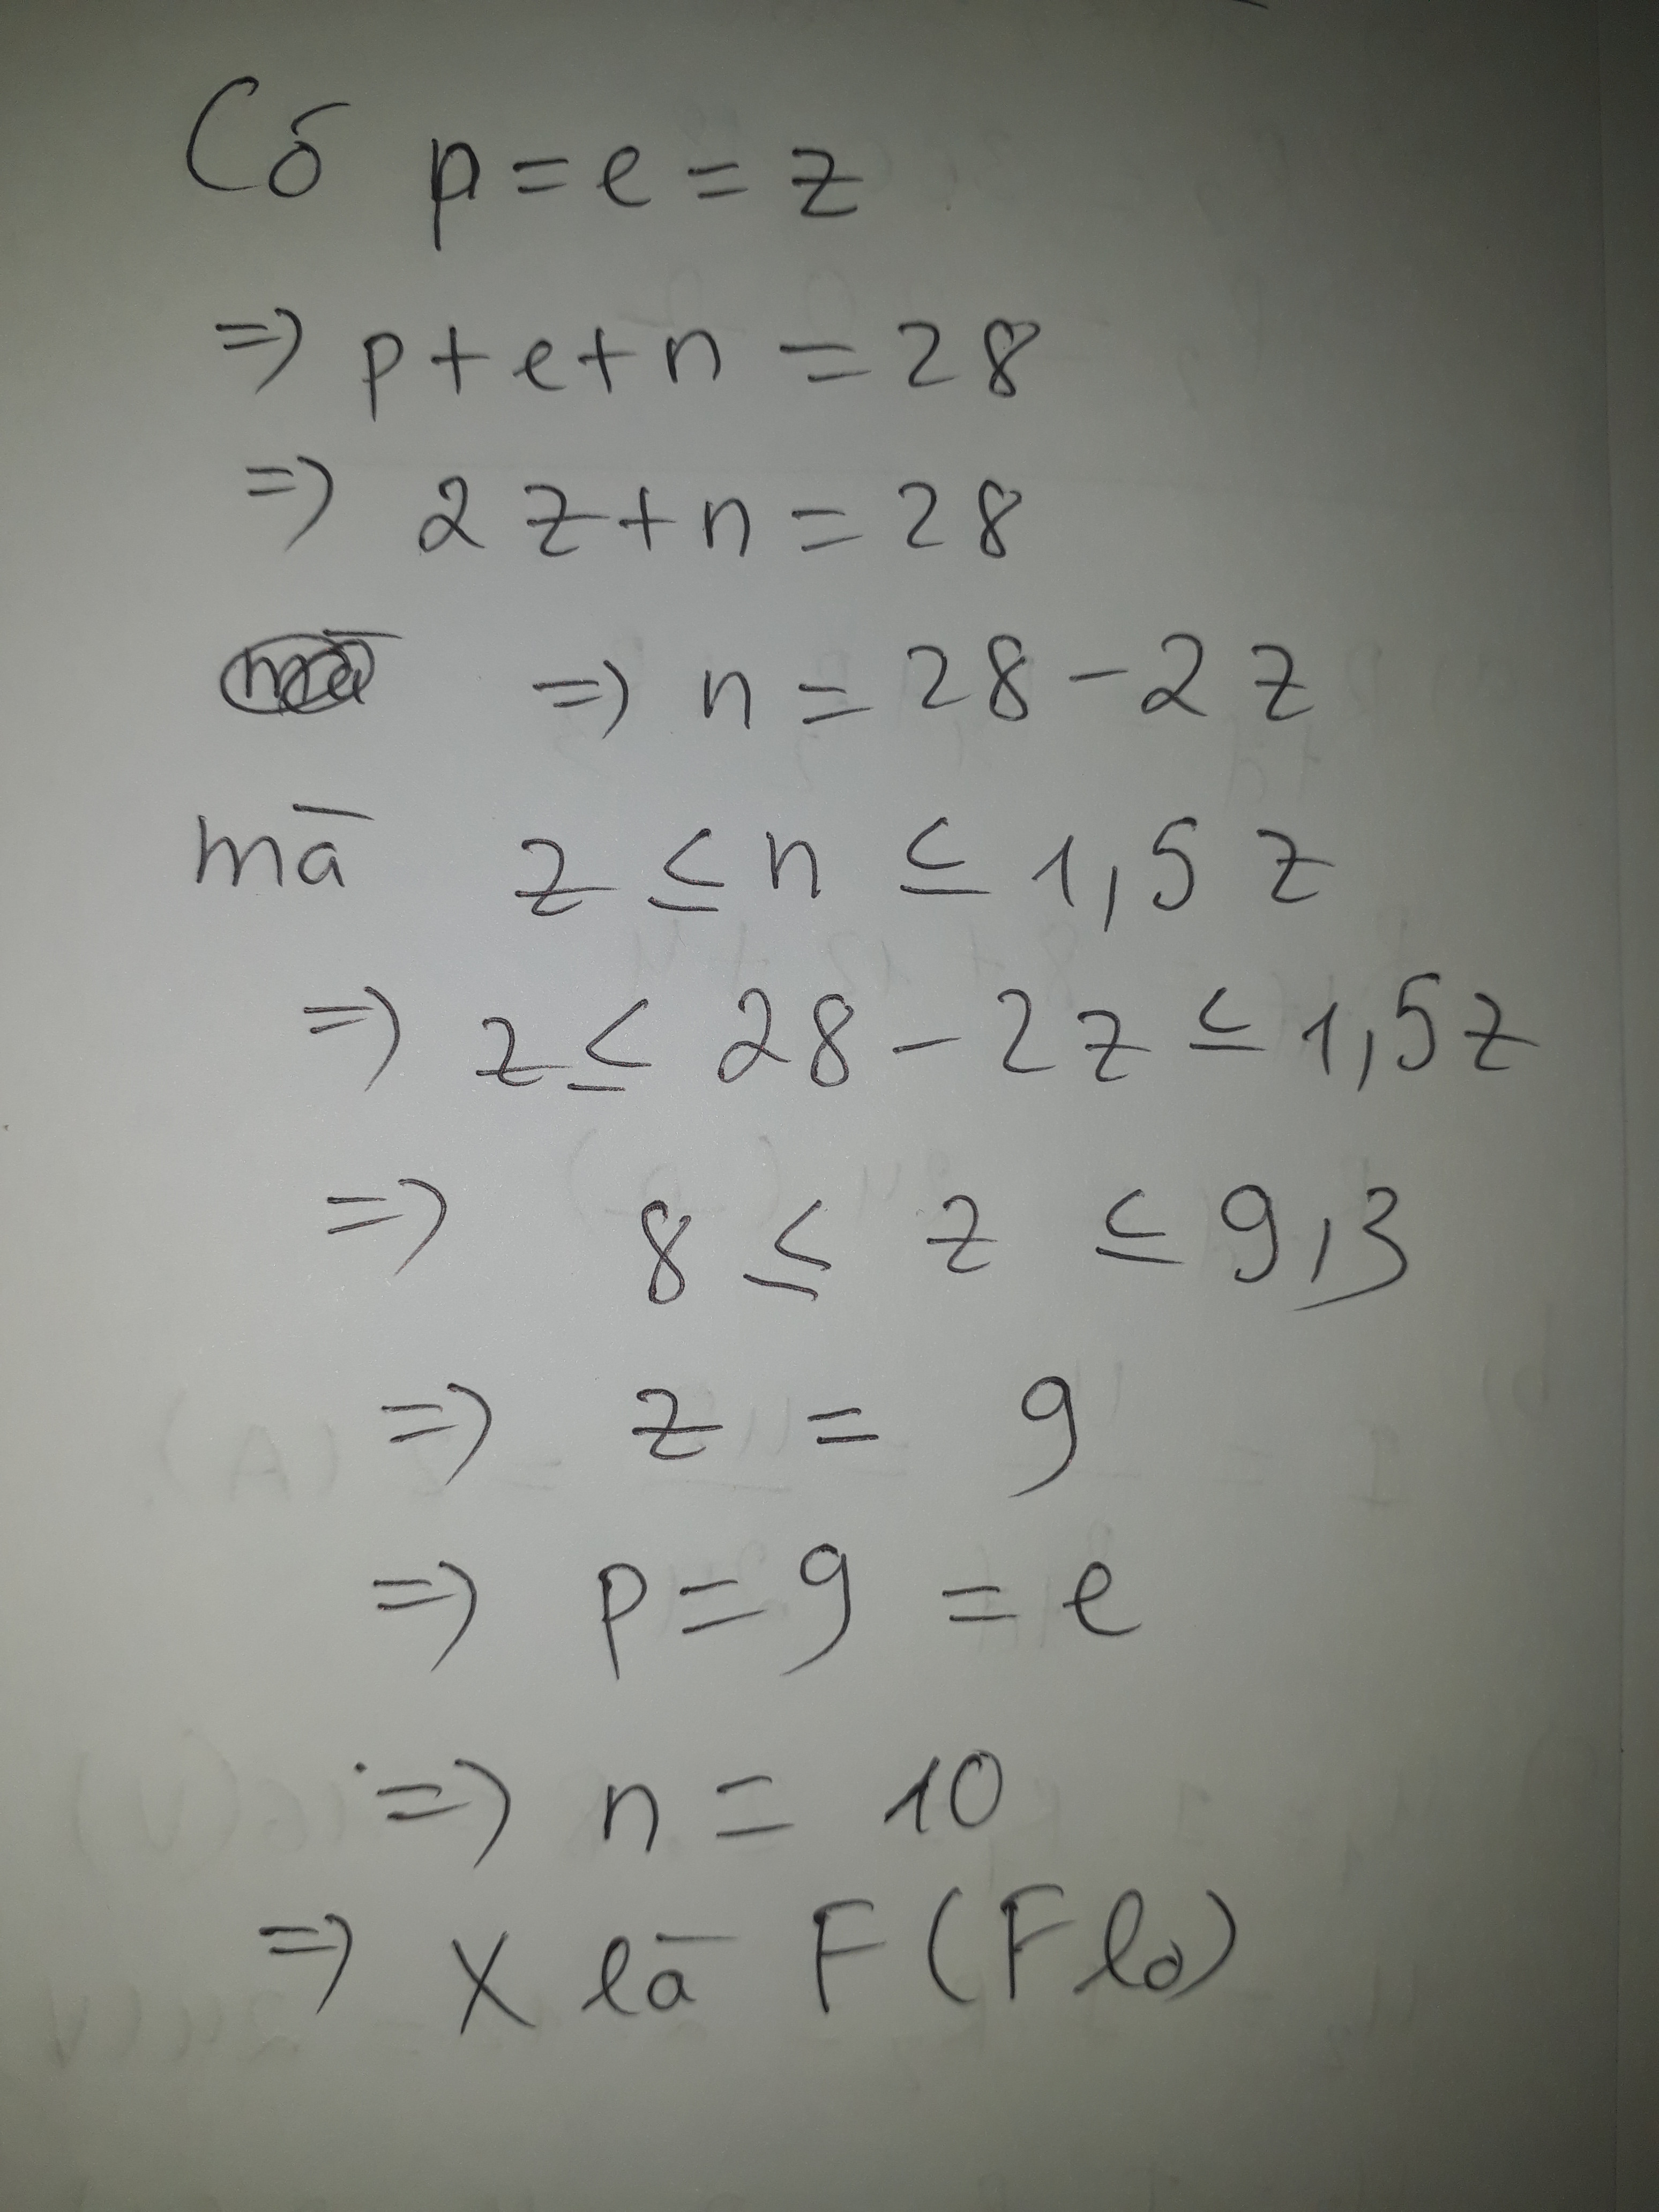 Có p = e = z
=> p + e + n = 28
=> 2z + n = 28
=> n = 28 - 2z
mà z ≤ n ≤ 1,5z
=> z ≤ 28 - 2z ≤ 1,5z
=> 8 ≤ z ≤ 9,3
=> z = 9
=> p = 9 = e
=> n = 10
=> X là F (Flo)